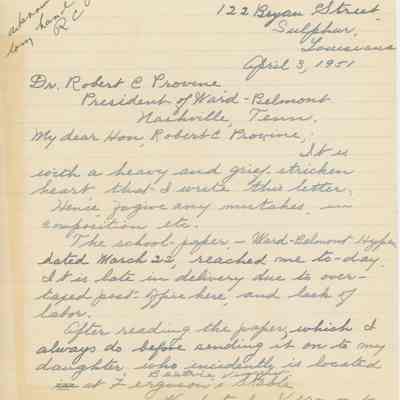 long hand
R C
122 Bryan Street
Sulphur,
Louisiana
April 3, 1951
Dr. Robert C Provine
President of Ward-Belmont
Nashville, Tenn.
My dear Hon, Robert C Provine,;
It is
with a heavy and grief stricken
heart that I write this letter.
Hence forgive any mistakes in
composition etc.
The school paper - Ward-Belmont Hyphen
dated March 22, reached me to-day.
It is late in delivery due to over-
taxed post-office here and lack of
labor.
After reading the paper, which I
always do before sending it on to my
daughter, who incidently is located
at Ferguson's Stable